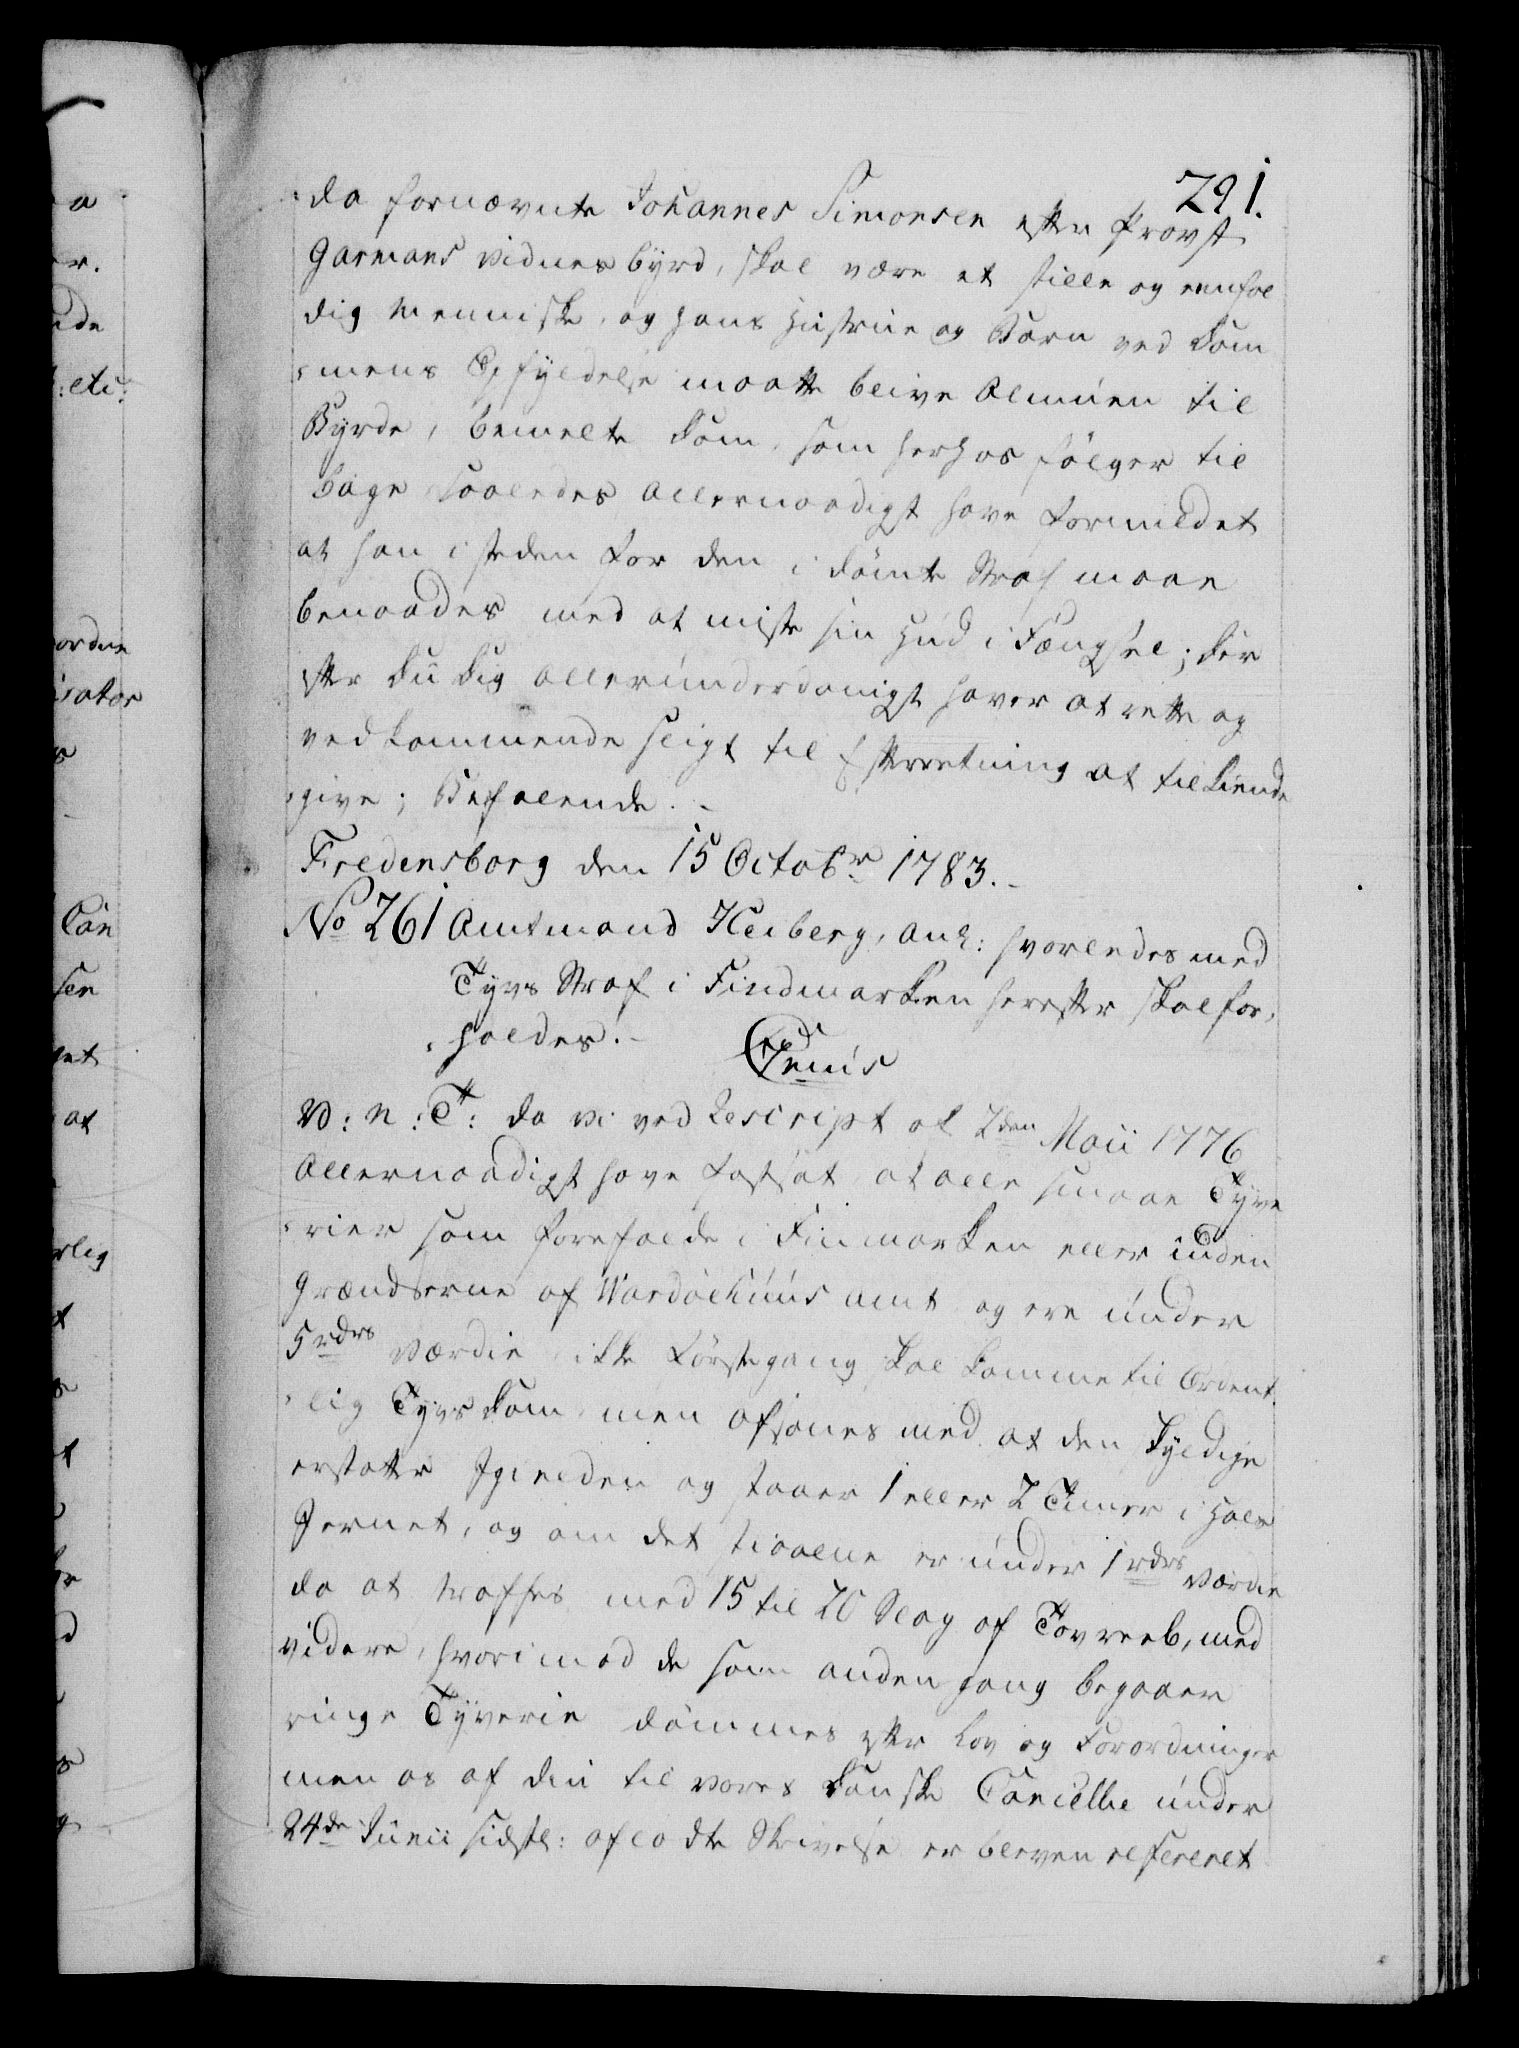 291.
da fornævnte Johannes Simonsen efter Provst
Garmans Vidnesbyrd, skal være et stille og eenfol
dig Menniske, og hans Hustrue og Børn ved Dom
mens Opfyldelse maatte blive Almuen til
Byrde, bemelte Dom, som herhos følger til
bage saaledes Allernaadigst have formildet
at han i steden for den i dømte Straf maae
benaades med at miste sin Hud i Fængsel; Der
efter Du Dig allerunderdanigst haver at rette og
vedkommende sligt til Efterretning at tilkiende
give; Befalende.
Fredensborg den 15 Octobr 1783.
No 261 Amtmand Heiberg, anl: hvorledes med
Tyvs Straf i Findmarken herefter skal for
holdes.
Genuis
V: n: T: da vi ved Rescript af 2den Maii 1776
Allernaadigst have fastsat, at alle smaae Tyve
rier som forefalde i Finmarken eller inden
Grændserne af Wardøehuus Amt og ere under
5 rdrs Værdie ikke førstegang skal komme til Ordent
lig Tyvs Dom, men afsones med at den skyldige
erstatter Igielden og staaer 1 eller 2 Timer i Hals
Jernet, og om det stiaalne er under 1 rdrs Værdie
da at straffes med 15 til 20 Slag af Tovreeb, med
videre, hvorimod de som anden gang begaaer
ringe Tyverie dømmes efter Lov og Forordninger
men os af din til vores Danske Cancellie under
24de Junii sidstl: afladte Skrivelse er bleven refereret